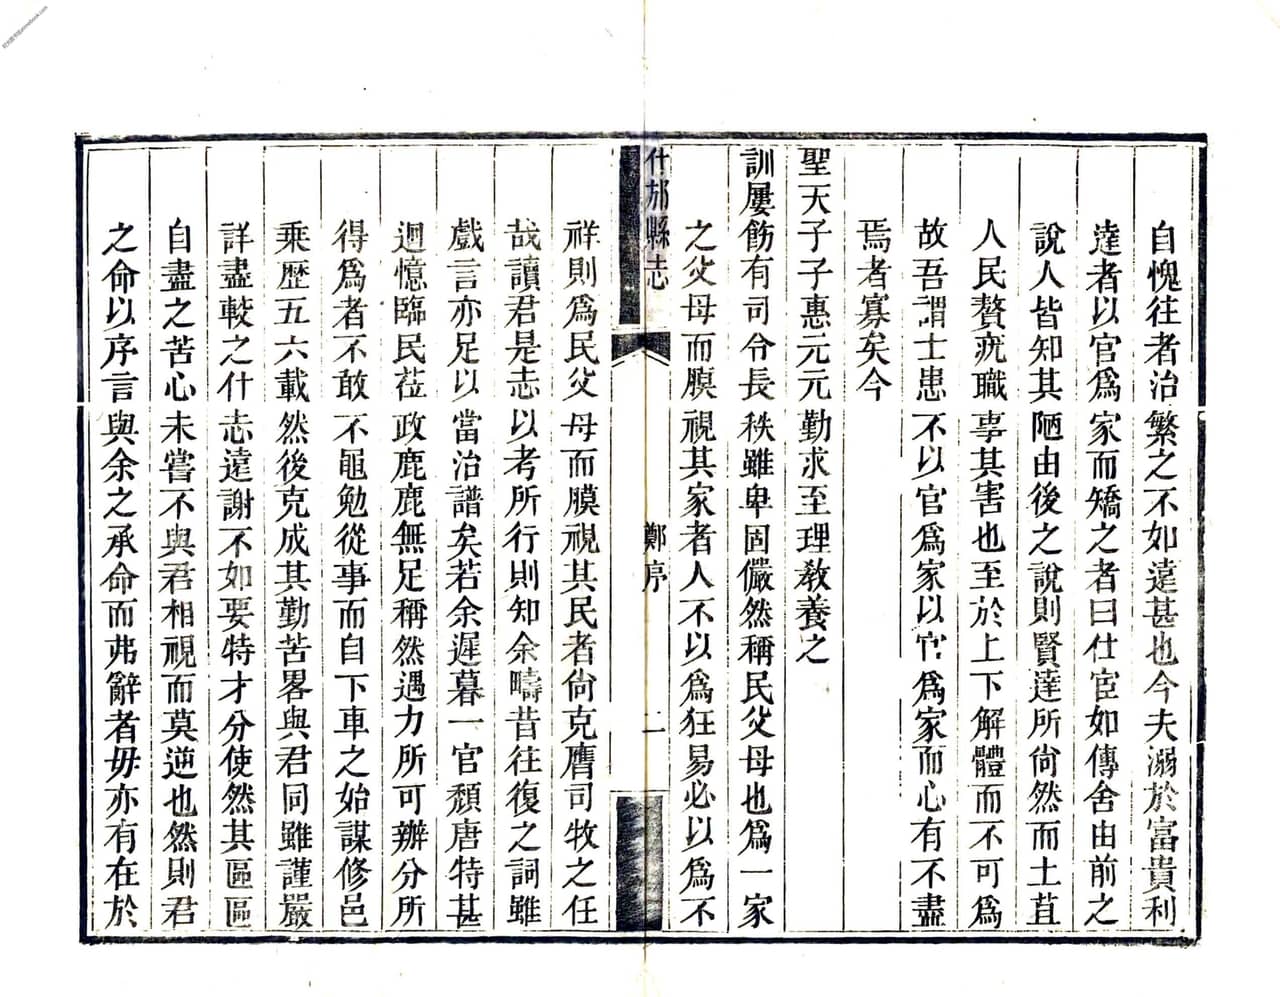 自愧往者治繁之不如遠甚也今夫溺於富貴利
達者以官爲家而矯之者曰仕宦如傳舍由前之
說人皆知其陋由後之說則賢達所尙然而土苴
人民贅疣職事其害也至於上下解體而不可爲
故吾謂士患不以官爲家以官爲家而心有不盡
焉者寡矣今
聖天子子惠元元勤求至理敎養之
訓屢飭有司令長秩雖卑固儼然稱民父母也爲一家
之父母而膜視其家者人不以爲狂易必以爲不
什邡縣志
鄭序
二
祥則爲民父母而膜視其民者尙克膺司牧之任
哉讀君是志以考所行則知余疇昔往復之詞雖
戲言亦足以當治譜矣若余遲暮一官頹唐特甚
迴憶臨民莅政鹿鹿無足稱然遇力所可辦分所
得爲者不敢不黽勉從事而自下車之始謀修邑
乘歷五六載然後克成其勤苦畧與君同雖謹嚴
詳盡較之什志遠謝不如要特才分使然其區區
自盡之苦心未嘗不與君相視而莫逆也然則君
之命以序言與余之承命而弗辭者毋亦有在於